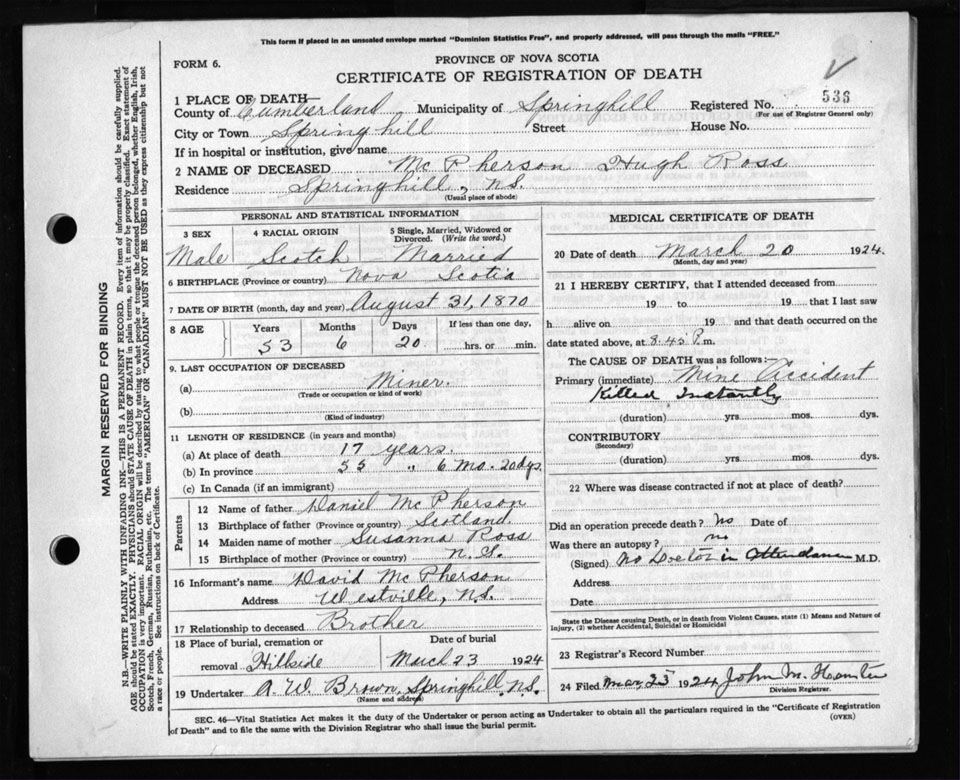 This form if placed in an unsealed envelope marked "Dominion Statistics Free", and properly addressed, will pass through the mails "FREE."
FORM 6.
PROVINCE OF NOVA SCOTIA
CERTIFICATE OF REGISTRATION OF DEATH
1 PLACE OF DEATH—
County of Cumberland Municipality of Springhill Registered No. 536
(For use of Registrar General only)
City or Town Springhill Street House No.
If in hospital or institution, give name
2 NAME OF DECEASED McPherson Hugh Ross
Residence Springhill, N.S.
(Usual place of abode)
PERSONAL AND STATISTICAL INFORMATION
3 SEX 4 RACIAL ORIGIN 5 Single, Married, Widowed or Divorced. (Write the word.)
Male Scotch Married
6 BIRTHPLACE (Province or country) Nova Scotia
7 DATE OF BIRTH (month, day and year) August 31, 1870
8 AGE Years Months Days If less than one day,
53 6 20 hrs. or min.
9. LAST OCCUPATION OF DECEASED
(a) Miner.
(Trade or occupation or kind of work)
(b)
(Kind of industry)
11 LENGTH OF RESIDENCE (in years and months)
(a) At place of death 17 years.
(b) In province 53 " 6 Mo. 20 dys.
(c) In Canada (if an immigrant)
Parents
12 Name of father Daniel McPherson
13 Birthplace of father (Province or country) Scotland.
14 Maiden name of mother Susanna Ross
15 Birthplace of mother (Province or country) N.S.
16 Informant's name David McPherson
Address Westville, N.S.
17 Relationship to deceased Brother
18 Place of burial, cremation or Date of burial
removal Hillside March 23 1924
19 Undertaker A. W. Brown, Springhill, N.S.
(Name and address)
MEDICAL CERTIFICATE OF DEATH
20 Date of death March 20 1924.
(Month, day and year)
21 I HEREBY CERTIFY, that I attended deceased from
19 to 19 that I last saw
h alive on 19 and that death occurred on the
date stated above, at 8.45 P. m.
The CAUSE OF DEATH was as follows:
Primary (immediate) Mine Accident
Killed Instantly
(duration) yrs. mos. dys.
CONTRIBUTORY
(Secondary)
(duration) yrs. mos. dys.
22 Where was disease contracted if not at place of death?
Did an operation precede death? No Date of
Was there an autopsy? no
(Signed) No Doctor in Attendance M.D.
Address
Date
State the Disease causing Death, or in death from Violent Causes, state (1) Means and Nature of
Injury, (2) whether Accidental, Suicidal or Homicidal
23 Registrar's Record Number
24 Filed Mar, 23 1924 John M. Hunter
Division Registrar.
SEC. 46—Vital Statistics Act makes it the duty of the Undertaker or person acting as Undertaker to obtain all the particulars required in the "Certificate of Registration
of Death" and to file the same with the Division Registrar who shall issue the burial permit.
(OVER)
MARGIN RESERVED FOR BINDING
N.B.—WRITE PLAINLY WITH UNFADING INK—THIS IS A PERMANENT RECORD. Every item of information should be carefully supplied.
AGE should be stated EXACTLY. PHYSICIANS should STATE CAUSE OF DEATH in plain terms, so that it may be properly classified. Exact statement of
OCCUPATION is very important. RACIAL ORIGIN will be described by stating to what people or tongue the deceased person belonged, whether English, Irish,
Scotch, French, German, Russian, Ruthenian, etc. The terms "AMERICAN" OR "CANADIAN" MUST NOT BE USED as they express citizenship but not
a race or people. See instructions on back of Certificate.